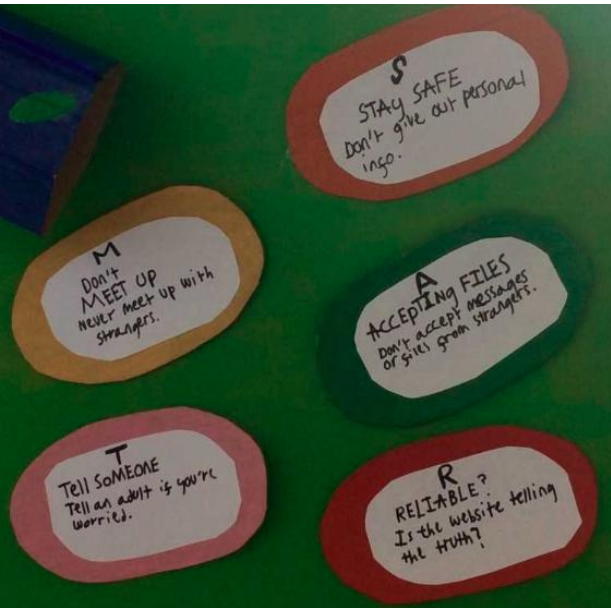 S
STAY SAFE
Don't give out personal
info.
M
Don't
MEET UP
Never meet up with
strangers.
A
ACCEPTING FILES
Don't accept messages
or files from strangers.
T
Tell SOMEONE
Tell an adult if you're
worried.
R
RELIABLE?
Is the website telling
the truth?